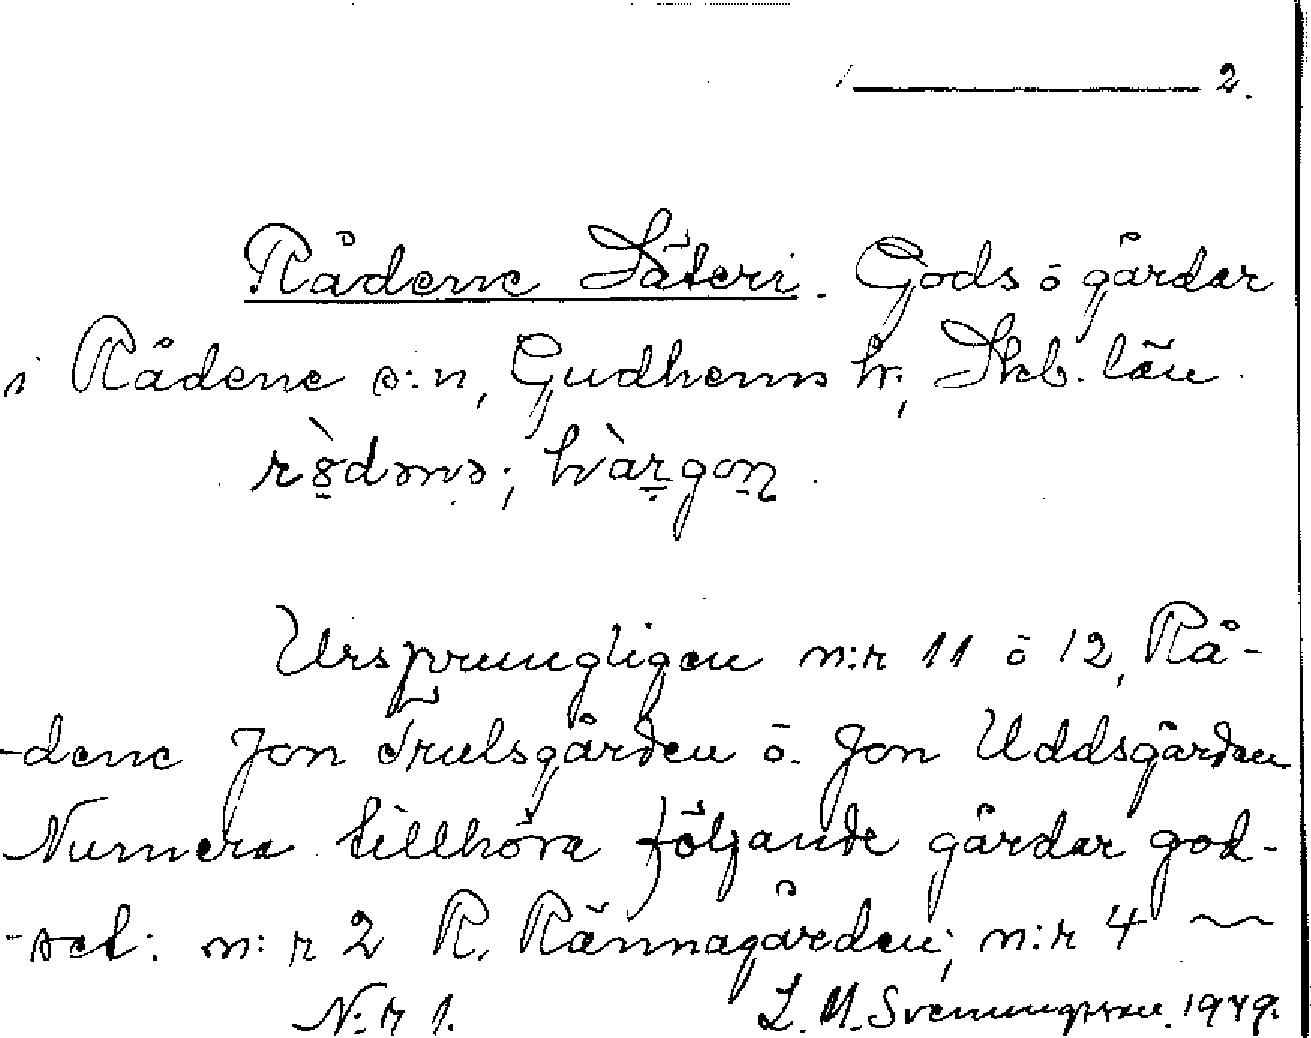 2.
Rådene Säteri. Gods ō gårdar
i Rådene s:n, Gudhems hr; Skb. län.
Ursprungligen n:r 11 ō 12, Rå-
-dene Jon Trulsgården ō. Jon Uddsgården
Numera tillhöra följande gårdar god-
-set: n:r 2 R. Rännagården; n:r 4 ~
N:r 1. L. M. Svenungsson. 1949.